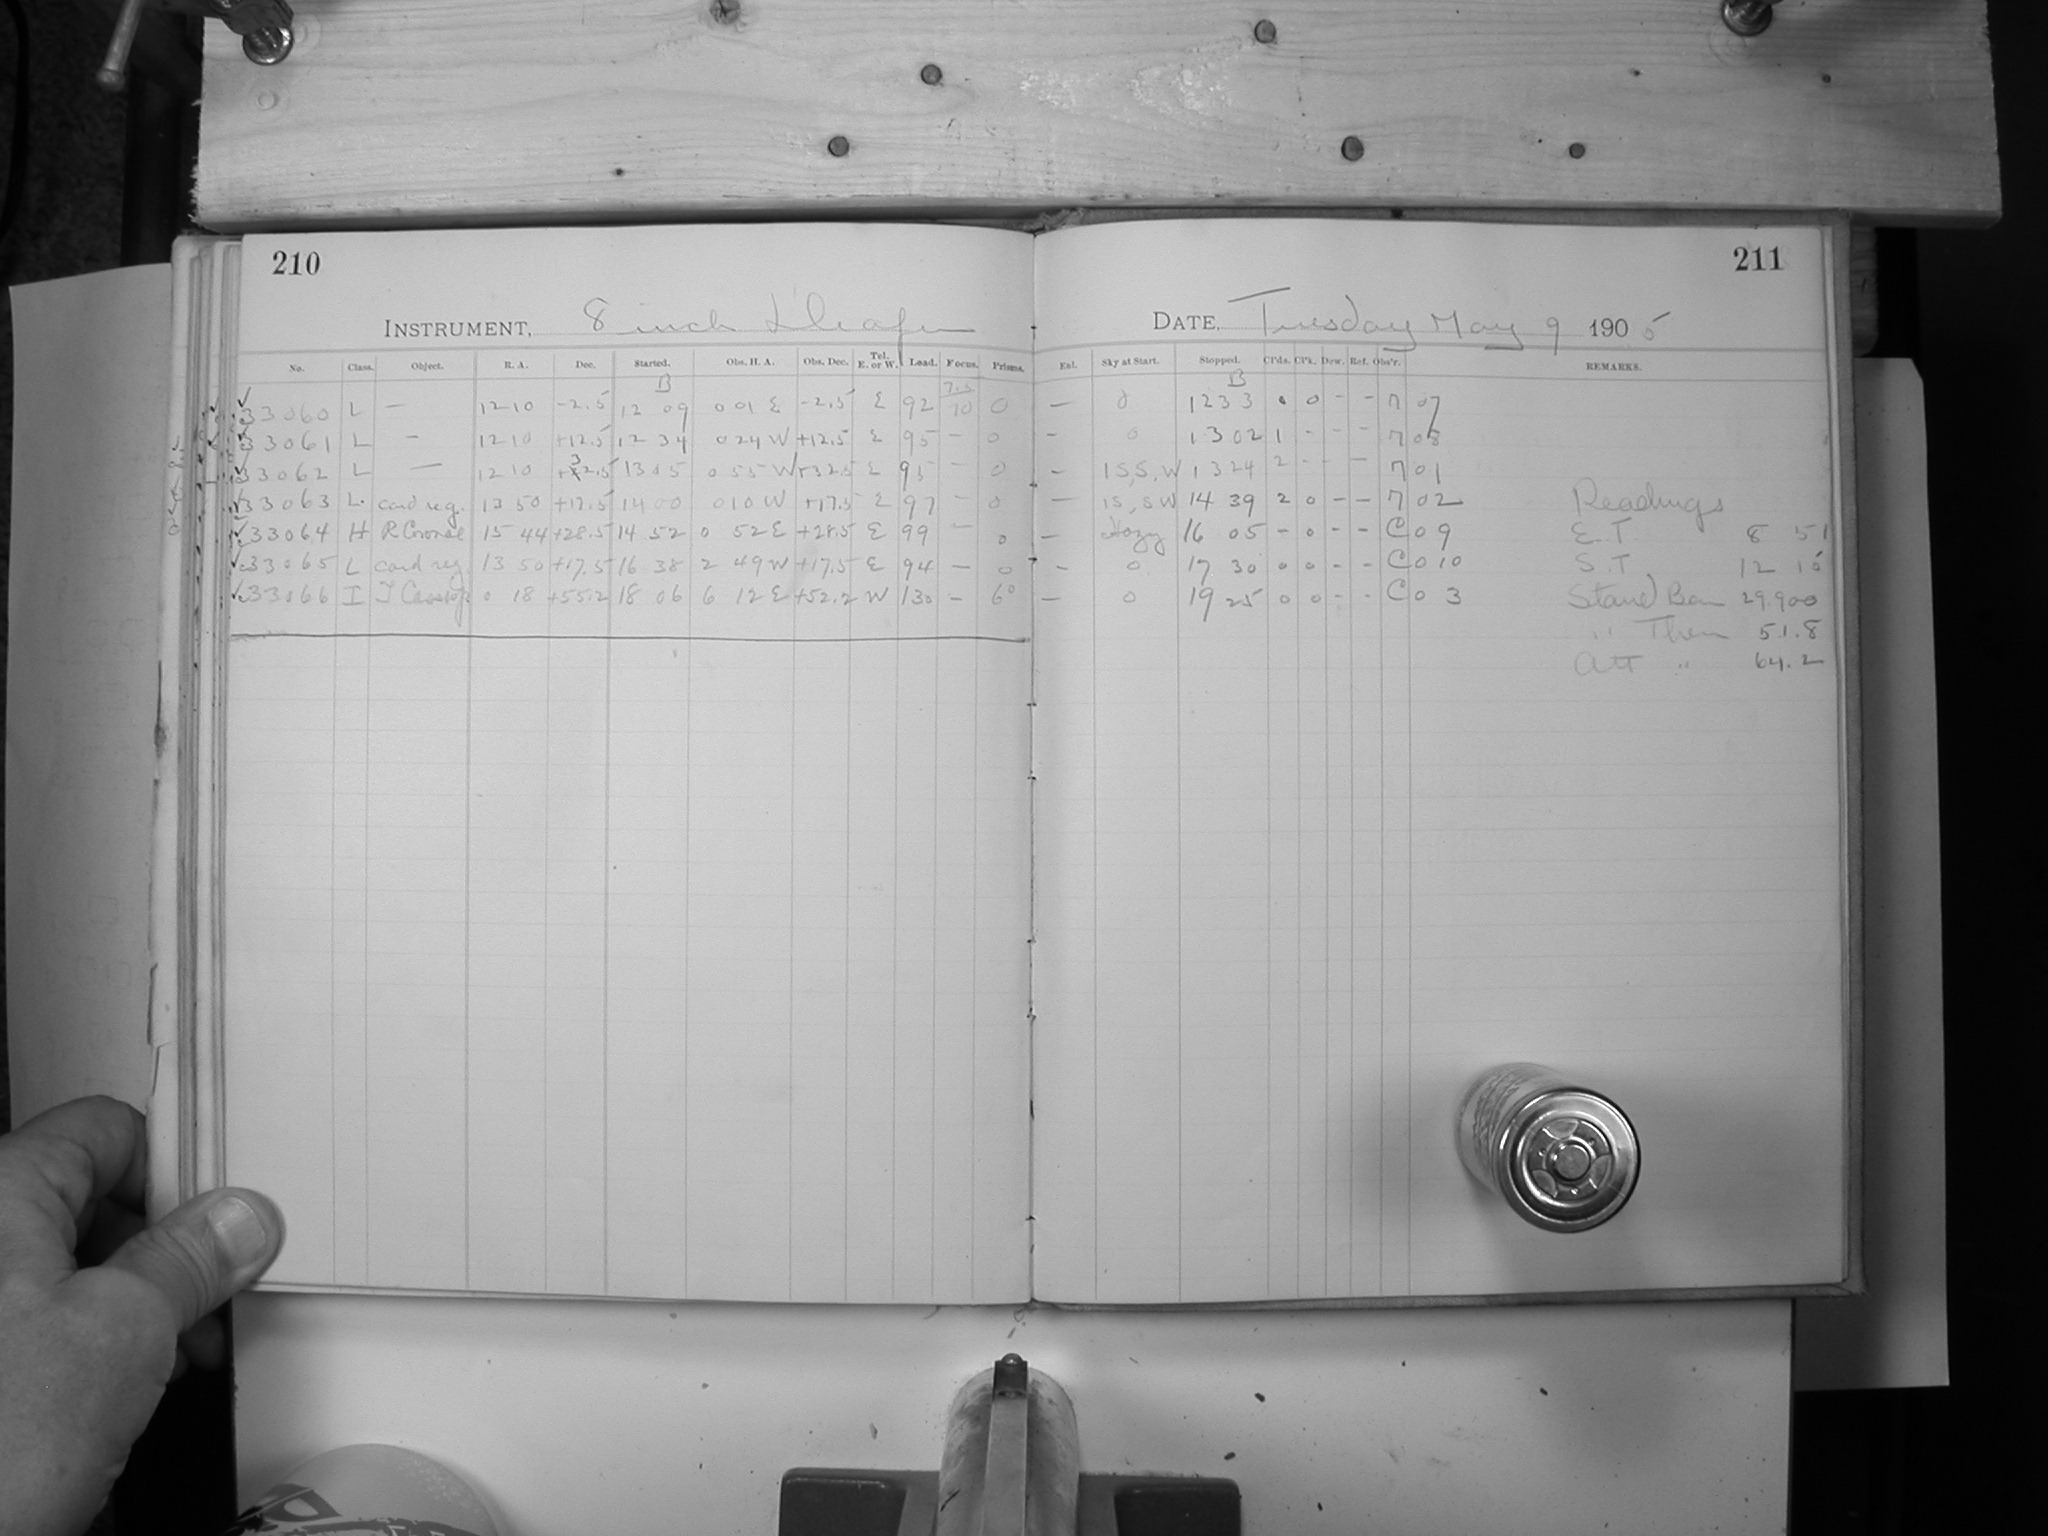 210
INSTRUMENT, 8 inch Draper
No. Class. Object. R. A. Dec. Started. Obs. H. A. Obs. Dec. Tel. E. or W. Load. Focus. Prisms.
B 7.5
33060 L — 12 10 -2.5 12 09 0 01 E -2.5 E 92 10 0
33061 L — 12 10 +12.5 12 34 0 24 W +12.5 E 95 - 0
33062 L — 12 10 +32.5 13 05 0 55 W +32.5 E 95 - 0
33063 L. cand reg. 13 50 +17.5 14 00 0 10 W +17.5 E 97 - 0
33064 H R Coronae 15 44 +28.5 14 52 0 52 E +28.5 E 99 - 0
33065 L cand reg. 13 50 +17.5 16 38 2 49 W +17.5 E 94 - 0
33066 I T Cassiop 0 18 +55.2 18 06 6 12 E +52.2 W 130 - 6°
211
DATE, Tuesday May 9 1905
Exl. Sky at Start. Stopped. Cl'ds. C'l'k. Dew. Ref. Obs'r. REMARKS.
B
— 0 12 33 0 0 - - 07
- 0 13 02 1 - - - 08
- 1S,S,W 13 24 2 - - - 01
— 1S,SW 14 39 2 0 - - 02 Readings
— Hazy 16 05 - 0 - - C 0 9 E.T 8 51
— 0 17 30 0 0 - - C 0 10 S.T. 12 10
— 0 19 25 0 0 - - C 0 3 Stand Bar 29.900
" Ther 51.8
Att " 64.2